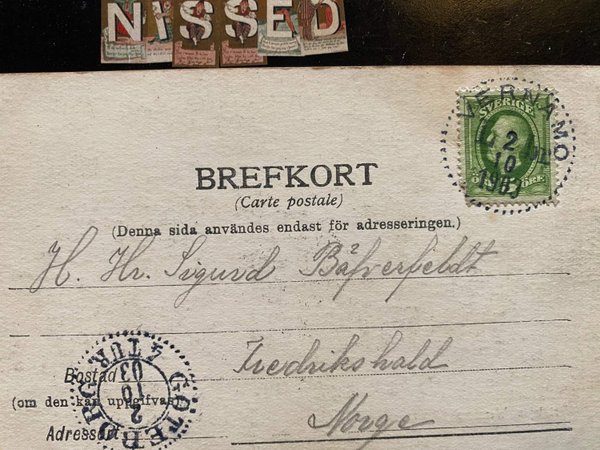 NISSED
VERNAMO
2
10
1903
SVERIGE
ÖRE
BREFKORT
(Carte postale)
(Denna sida användes endast för adresseringen.)
H. Hr. Sigurd Båfverfeldt
Fredrikshald
Norge
Bostad
(om den kan uppgifvas)
Adressort
GÖTEBORG
2
10
03
4 TUR